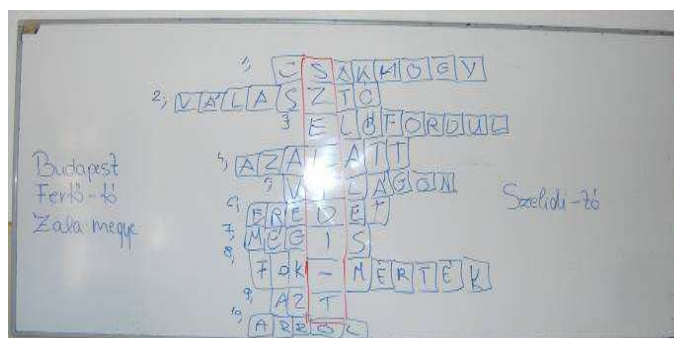 1, CSAKHOGY
2, VÁLASZTÓ
3 ELŐFORDUL
4, AZALATT
5, VILÁGON
6, EREDET
7, MÉGIS
8, FOK-MÉRTÉK
9, AZT
10, ARRÓL
Budapest
Fertő-tó
Zala megye
Szelidi-tó